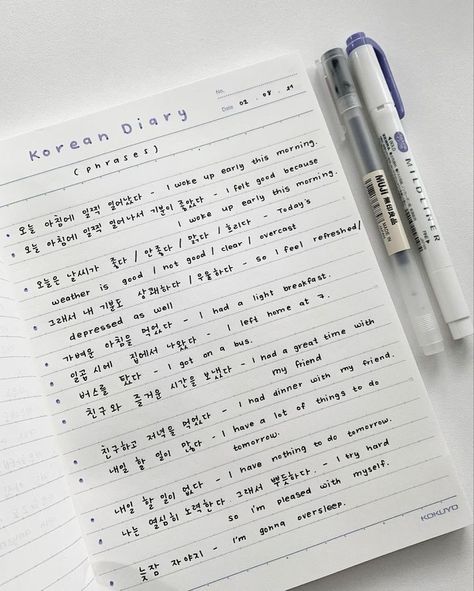 Korean Diary
(phrases)
No.
Date 02 . 08 . 21
오늘 아침에 일찍 일어났다 - I woke up early this morning.
오늘 아침에 일찍 일어나서 기분이 좋았다 - I felt good because
I woke up early this morning.
오늘은 날씨가 좋다 / 안좋다 / 맑다 / 흐리다 - Today's
weather is good / not good / clear / overcast
그래서 내 기분도 상쾌하다 / 우울하다 - so I feel refreshed/
depressed as well
가벼운 아침을 먹었다 - I had a light breakfast.
일곱 시에 집에서 나왔다 - I left home at 7.
버스를 탔다 - I got on a bus.
친구와 즐거운 시간을 보냈다 - I had a great time with
my friend
친구하고 저녁을 먹었다 - I had dinner with my friend.
내일 할 일이 많다 - I have a lot of things to do
tomorrow.
내일 할 일이 없다 - I have nothing to do tomorrow.
나는 열심히 노력한다. 그래서 뿌듯하다. - I try hard
so I'm pleased with myself.
늦잠 자야지 - I'm gonna oversleep.
KOKUYO
MUJI 無印良品
MILDLINER